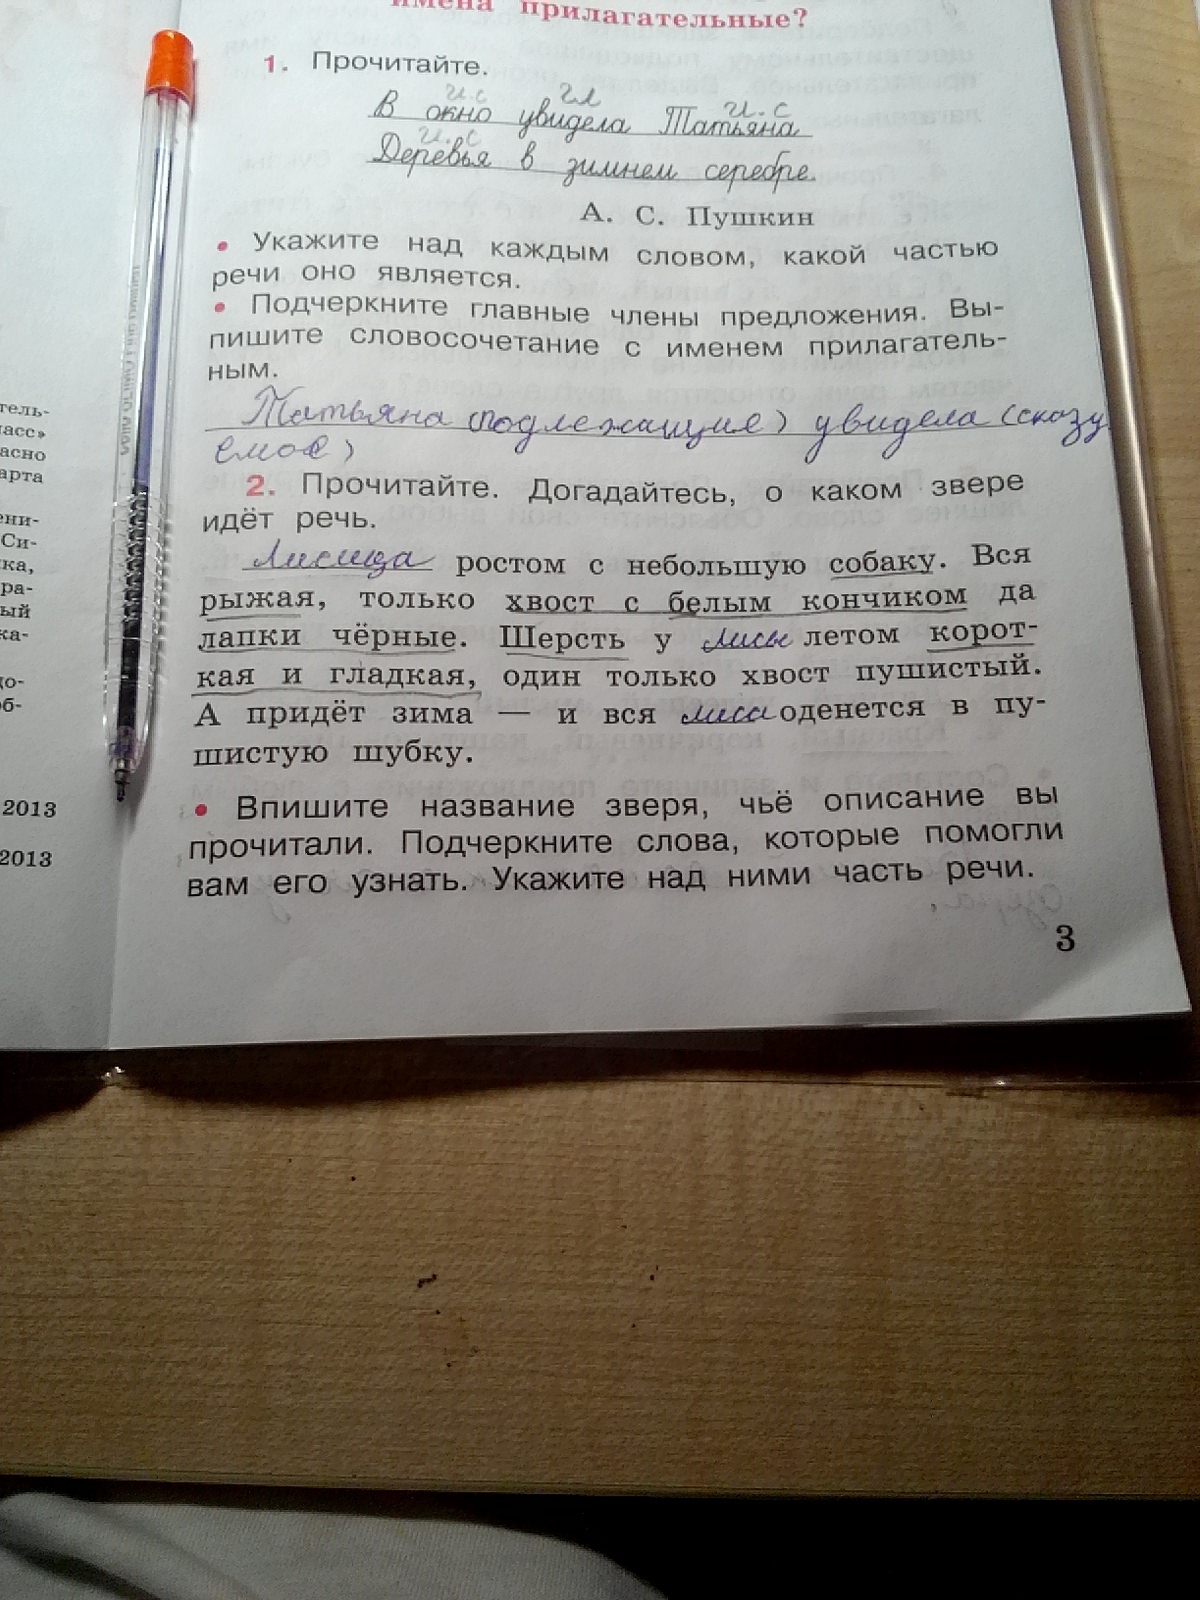 имена прилагательные?
1. Прочитайте.
и.с гл и.с
В окно увидела Татьяна
и.с
Деревья в зимнем серебре.
А. С. Пушкин
• Укажите над каждым словом, какой частью
речи оно является.
• Подчеркните главные члены предложения. Вы-
пишите словосочетание с именем прилагатель-
ным.
Татьяна (подлежащие) увидела (сказу
емое)
2. Прочитайте. Догадайтесь, о каком звере
идёт речь.
Лисица ростом с небольшую собаку. Вся
рыжая, только хвост с белым кончиком да
лапки чёрные. Шерсть у лисы летом корот-
кая и гладкая, один только хвост пушистый.
А придёт зима — и вся лиса оденется в пу-
шистую шубку.
• Впишите название зверя, чьё описание вы
прочитали. Подчеркните слова, которые помогли
вам его узнать. Укажите над ними часть речи.
3
тель-
ласс»
асно
арта
ени-
Си-
ка,
ра-
ый
ка-
до-
об-
2013
2013